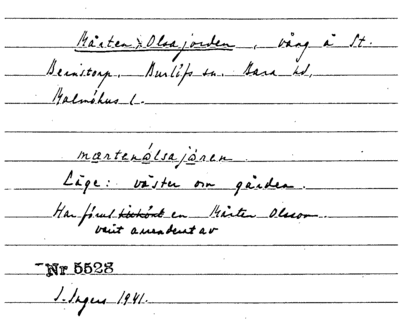 Mårten Olsajorden, vång å St.
Beinstorp, Burlöfs sn. Bara hd,
Malmöhus l.
mærtenólsajóren
Läge: väster om gården.
Har förut en Mårten Olsson
varit arrenderat av
Nr 5528
I. Ingers 1941.